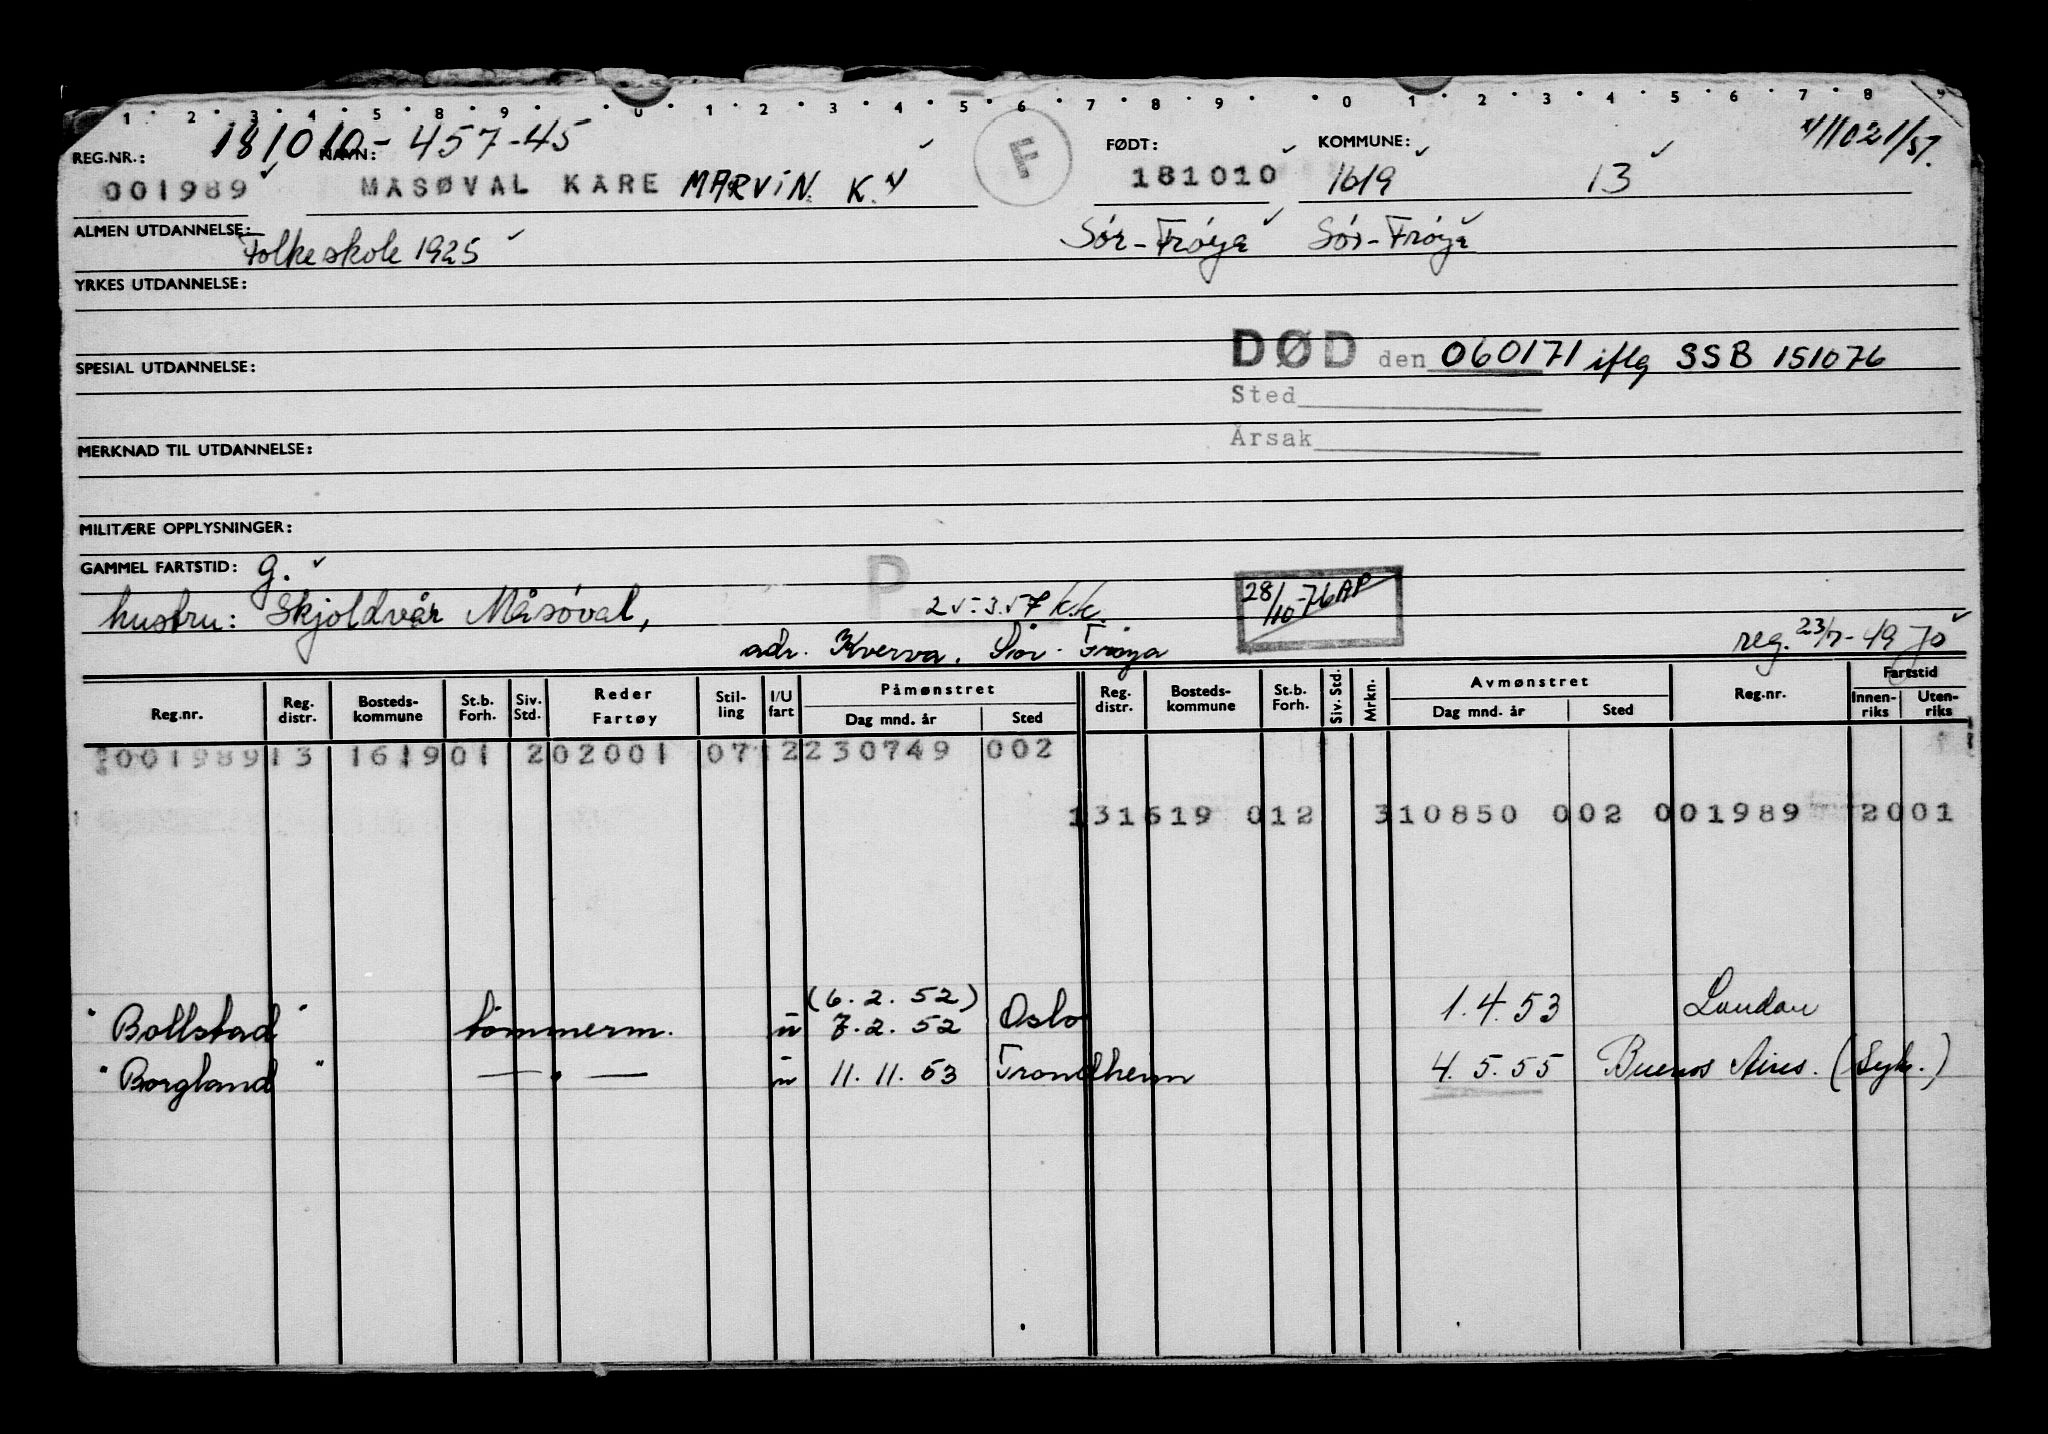 1 2 3 4 5 8 9 0 1 2 3 4 5 6 7 8 9 0 1 2 3 4 5 6 7 8 9
181010-457-45
REG.NR.: NAVN: F FØDT: KOMMUNE:
001989 MASØVAL KARE MARVIN K. 181010 1619 13
ALMEN UTDANNELSE: Folkeskole 1925 Sór-Fróya Sór-Fróya
YRKES UTDANNELSE:
DØD den 060171 iflg SSB 151076
SPESIAL UTDANNELSE:
Sted
Årsak
MERKNAD TIL UTDANNELSE:
MILITÆRE OPPLYSNINGER:
GAMMEL FARTSTID: g. P
hustru: Skjoldvår Måsóval, 25.3.57 k.k. 28/10-76 AP
adr. Kverva, Sór-Fróya reg. 23/7-49 70
Reg.nr. Reg. distr. Bosteds-kommune St.b. Forh. Siv. Std. Reder Fartøy Stil-ling I/U fart Påmønstret Dag mnd. år Sted Reg. distr. Bosteds-kommune St.b. Forh. Siv. Std. Mrkn. Avmønstret Dag mnd. år Sted Reg.nr. Fartstid Innen-riks Uten-riks
001989 13 1619 01 2 02001 07 2 230749 002
131619 012 310850 002 001989 2001
(6.2.52)
"Bollstad" tømmerm. u 7.2.52 Oslo 1.4.53 London
"Borgland" — " — u 11.11.53 Trondheim 4.5.55 Buenos Aires. (Syk.)